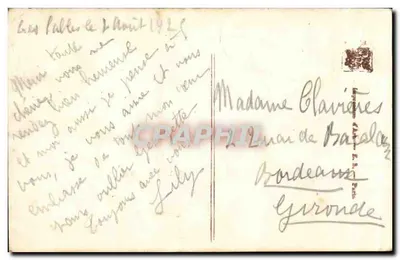 Les Sables le 7 Août 1925
Mimi toute
vous me
rendez bien heureuse
et moi aussi je pense à
vous, je vous aime et vous
embrasse de tout mon cœur
sans oublier
toujours avec vous
Lily
Madame Clavières
22 quai de Bacalan
Bordeaux
Gironde
CPAPHIL
Paris